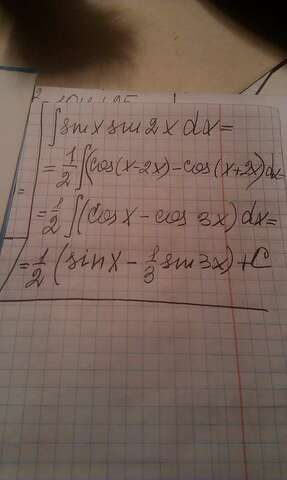 ∫ sin x sin 2x dx =
= 1/2 ∫ (cos(x-2x) - cos(x+2x)) dx
= 1/2 ∫ (cos x - cos 3x) dx =
= 1/2 (sin x - 1/3 sin 3x) + C